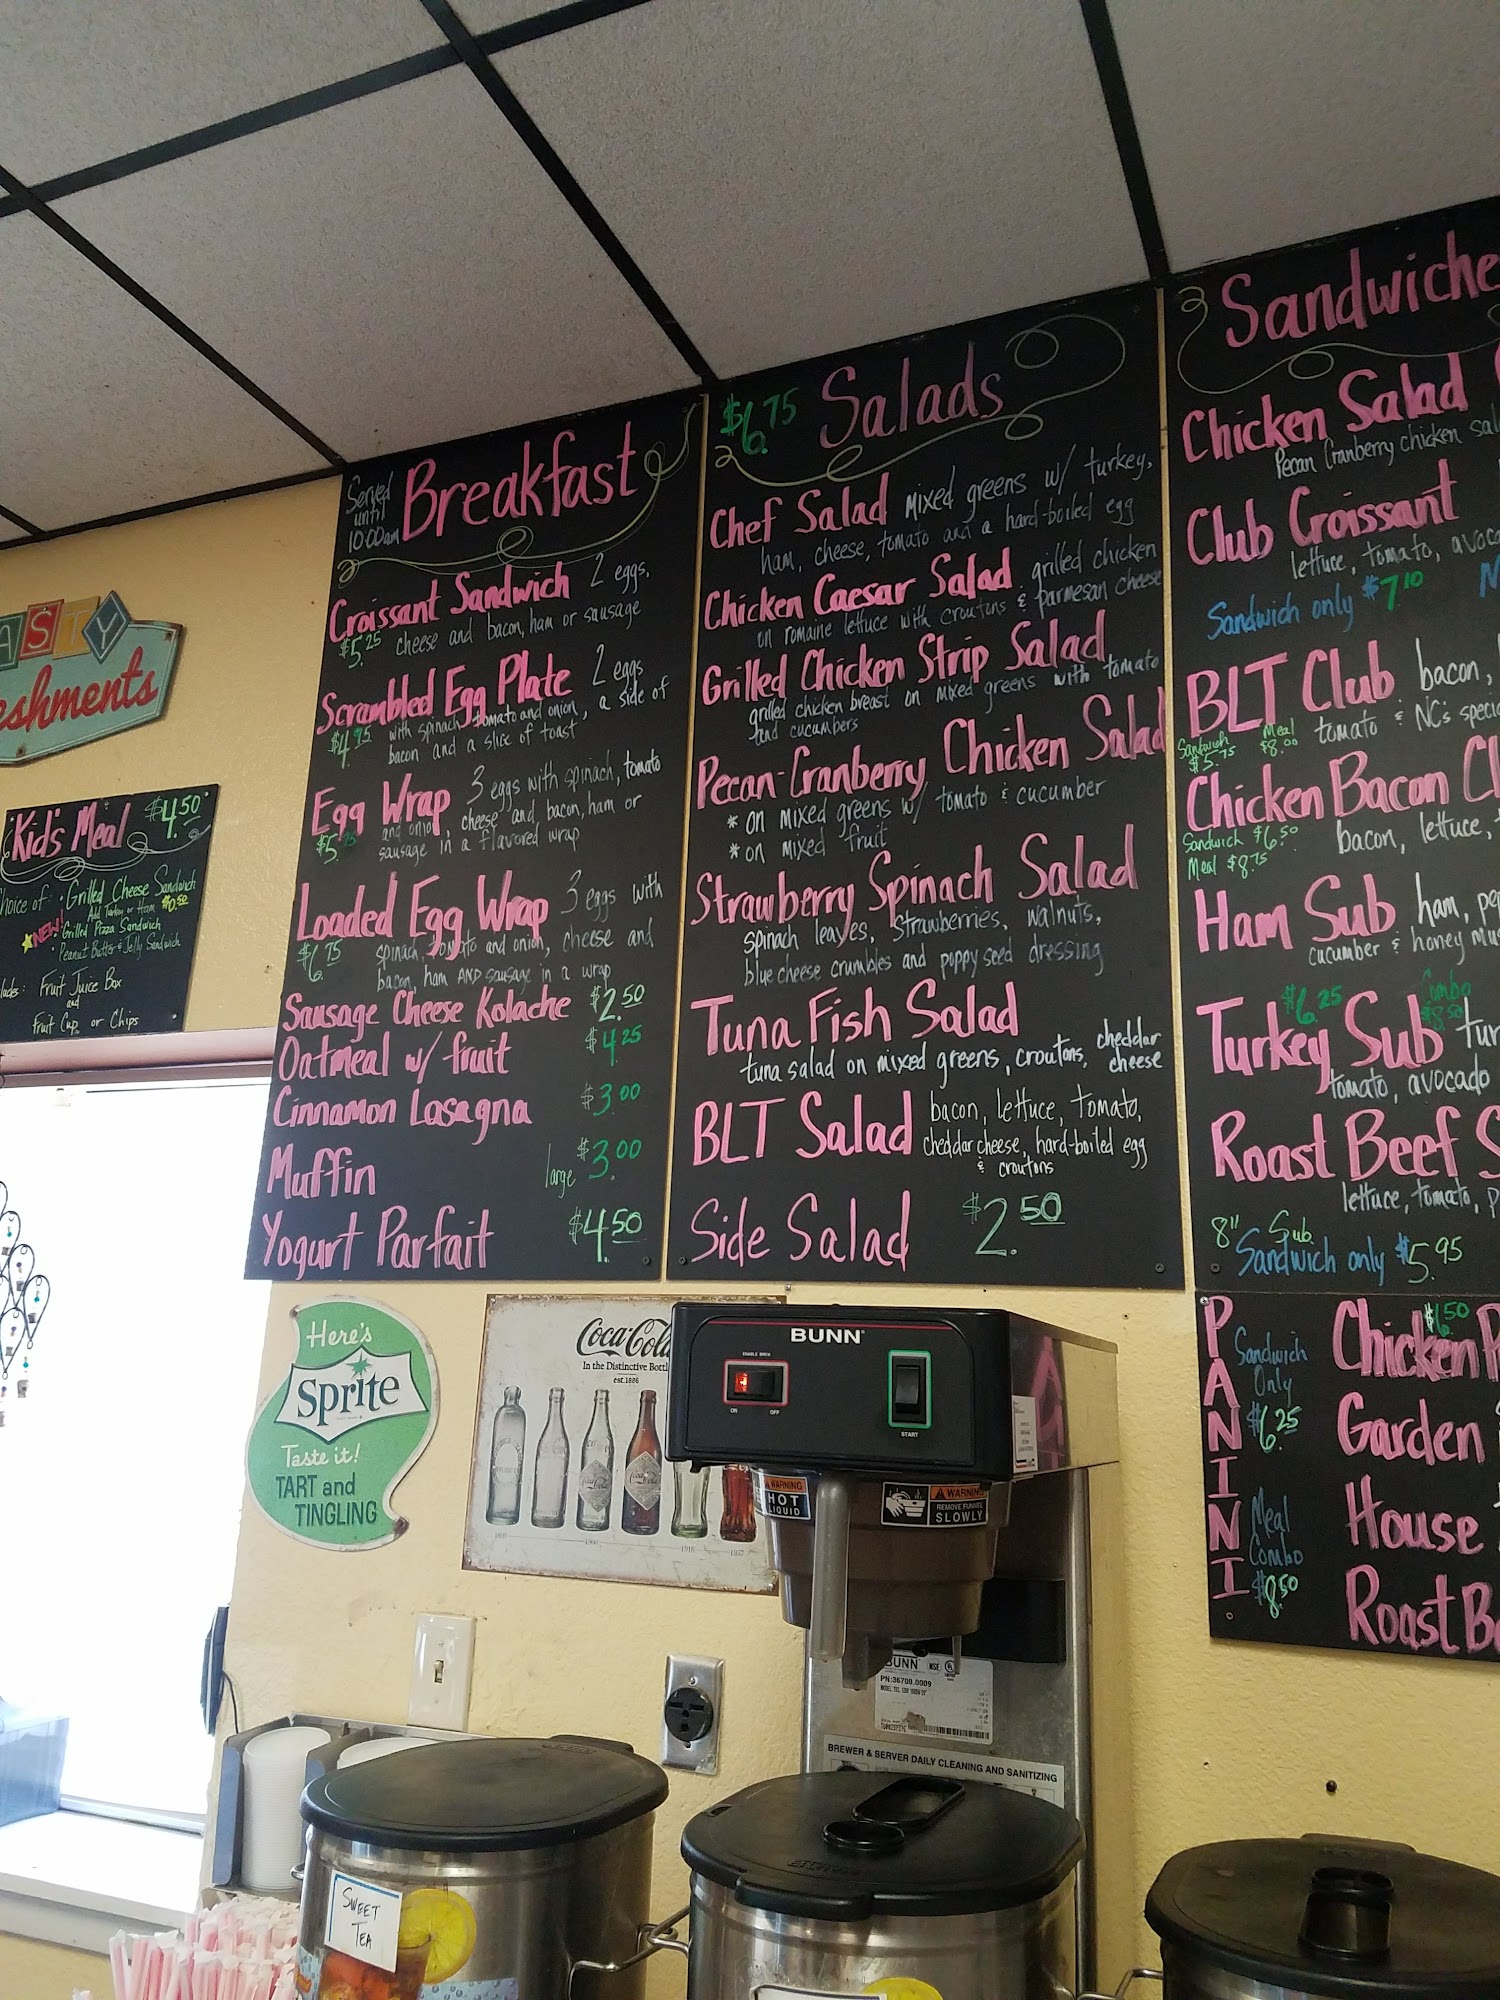 ASTY
eshments
Kid's Meal $4.50
Choice of: • Grilled Cheese Sandwich
Add Turkey or Ham $0.50
NEW! • Grilled Pizza Sandwich
• Peanut Butter & Jelly Sandwich
Fruit Juice Box
and
Fruit Cup or Chips
Served until 10:00am
Breakfast
Croissant Sandwich 2 eggs,
$5.25 cheese and bacon, ham or sausage
Scrambled Egg Plate 2 eggs
$4.95 with spinach, tomato and onion, a side of
bacon and a slice of toast
Egg Wrap 3 eggs with spinach, tomato
and onion, cheese and bacon, ham or
sausage in a flavored wrap
Loaded Egg Wrap 3 eggs with
$6.75 spinach, tomato and onion, cheese and
bacon, ham AND sausage in a wrap
Sausage Cheese Kolache $2.50
Oatmeal w/ fruit $4.25
Cinnamon Lasagna $3.00
Muffin large $3.00
Yogurt Parfait $4.50
$6.75 Salads
Chef Salad mixed greens w/ turkey,
ham, cheese, tomato and a hard-boiled egg
Chicken Caesar Salad grilled chicken
on romaine lettuce with croutons & parmesan cheese
Grilled Chicken Strip Salad
grilled chicken breast on mixed greens with tomato
and cucumbers
Pecan-Cranberry Chicken Salad
* on mixed greens w/ tomato & cucumber
* on mixed fruit
Strawberry Spinach Salad
spinach leaves, strawberries, walnuts,
blue cheese crumbles and poppy seed dressing
Tuna Fish Salad
tuna salad on mixed greens, croutons, cheddar cheese
BLT Salad bacon, lettuce, tomato,
cheddar cheese, hard-boiled egg
& croutons
Side Salad $2.50
Sandwiche
Chicken Salad
Pecan Cranberry chicken sal
Club Croissant
lettuce, tomato, avoca
Sandwich only $7.10
BLT Club bacon,
tomato & NC's speci
Sandwich $5.75 Meal $8.00
Chicken Bacon Cl
Sandwich $6.50 bacon, lettuce,
Meal $8.75
Ham Sub ham, pep
cucumber & honey mus
$6.25 Combo $8.50
Turkey Sub tur
tomato, avocado
Roast Beef S
lettuce, tomato, p
8" Sub
Sandwich only $5.95
PANINI
Sandwich Only $6.25
Meal Combo $8.50
Chicken P
$6.50
Garden
House
Roast B
Here's
Sprite
Taste it!
TART and
TINGLING
Coca-Cola
In the Distinctive Bottl
est.1886
1916
1957
BUNN
ENABLE BREW
ON OFF
START
WARNING
HOT
LIQUID
WARNING
REMOVE FUNNEL
SLOWLY
BUNN NSF
PN:36700.0009
BREWER & SERVER DAILY CLEANING AND SANITIZING
SWEET
TEA